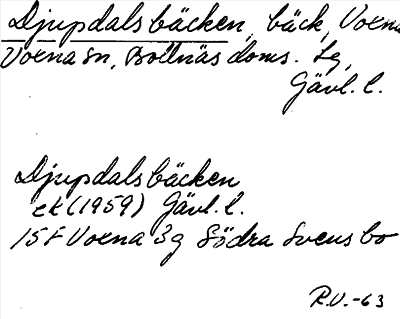 Djupdalsbäcken, bäck, Voxna
Voxna sn, Bollnäs doms. Lg,
Gävl. l.
Djupdalsbäcken
ek (1959) Gävl. l.
15F Voxna 3g Södra Svensbo
R.V.-63